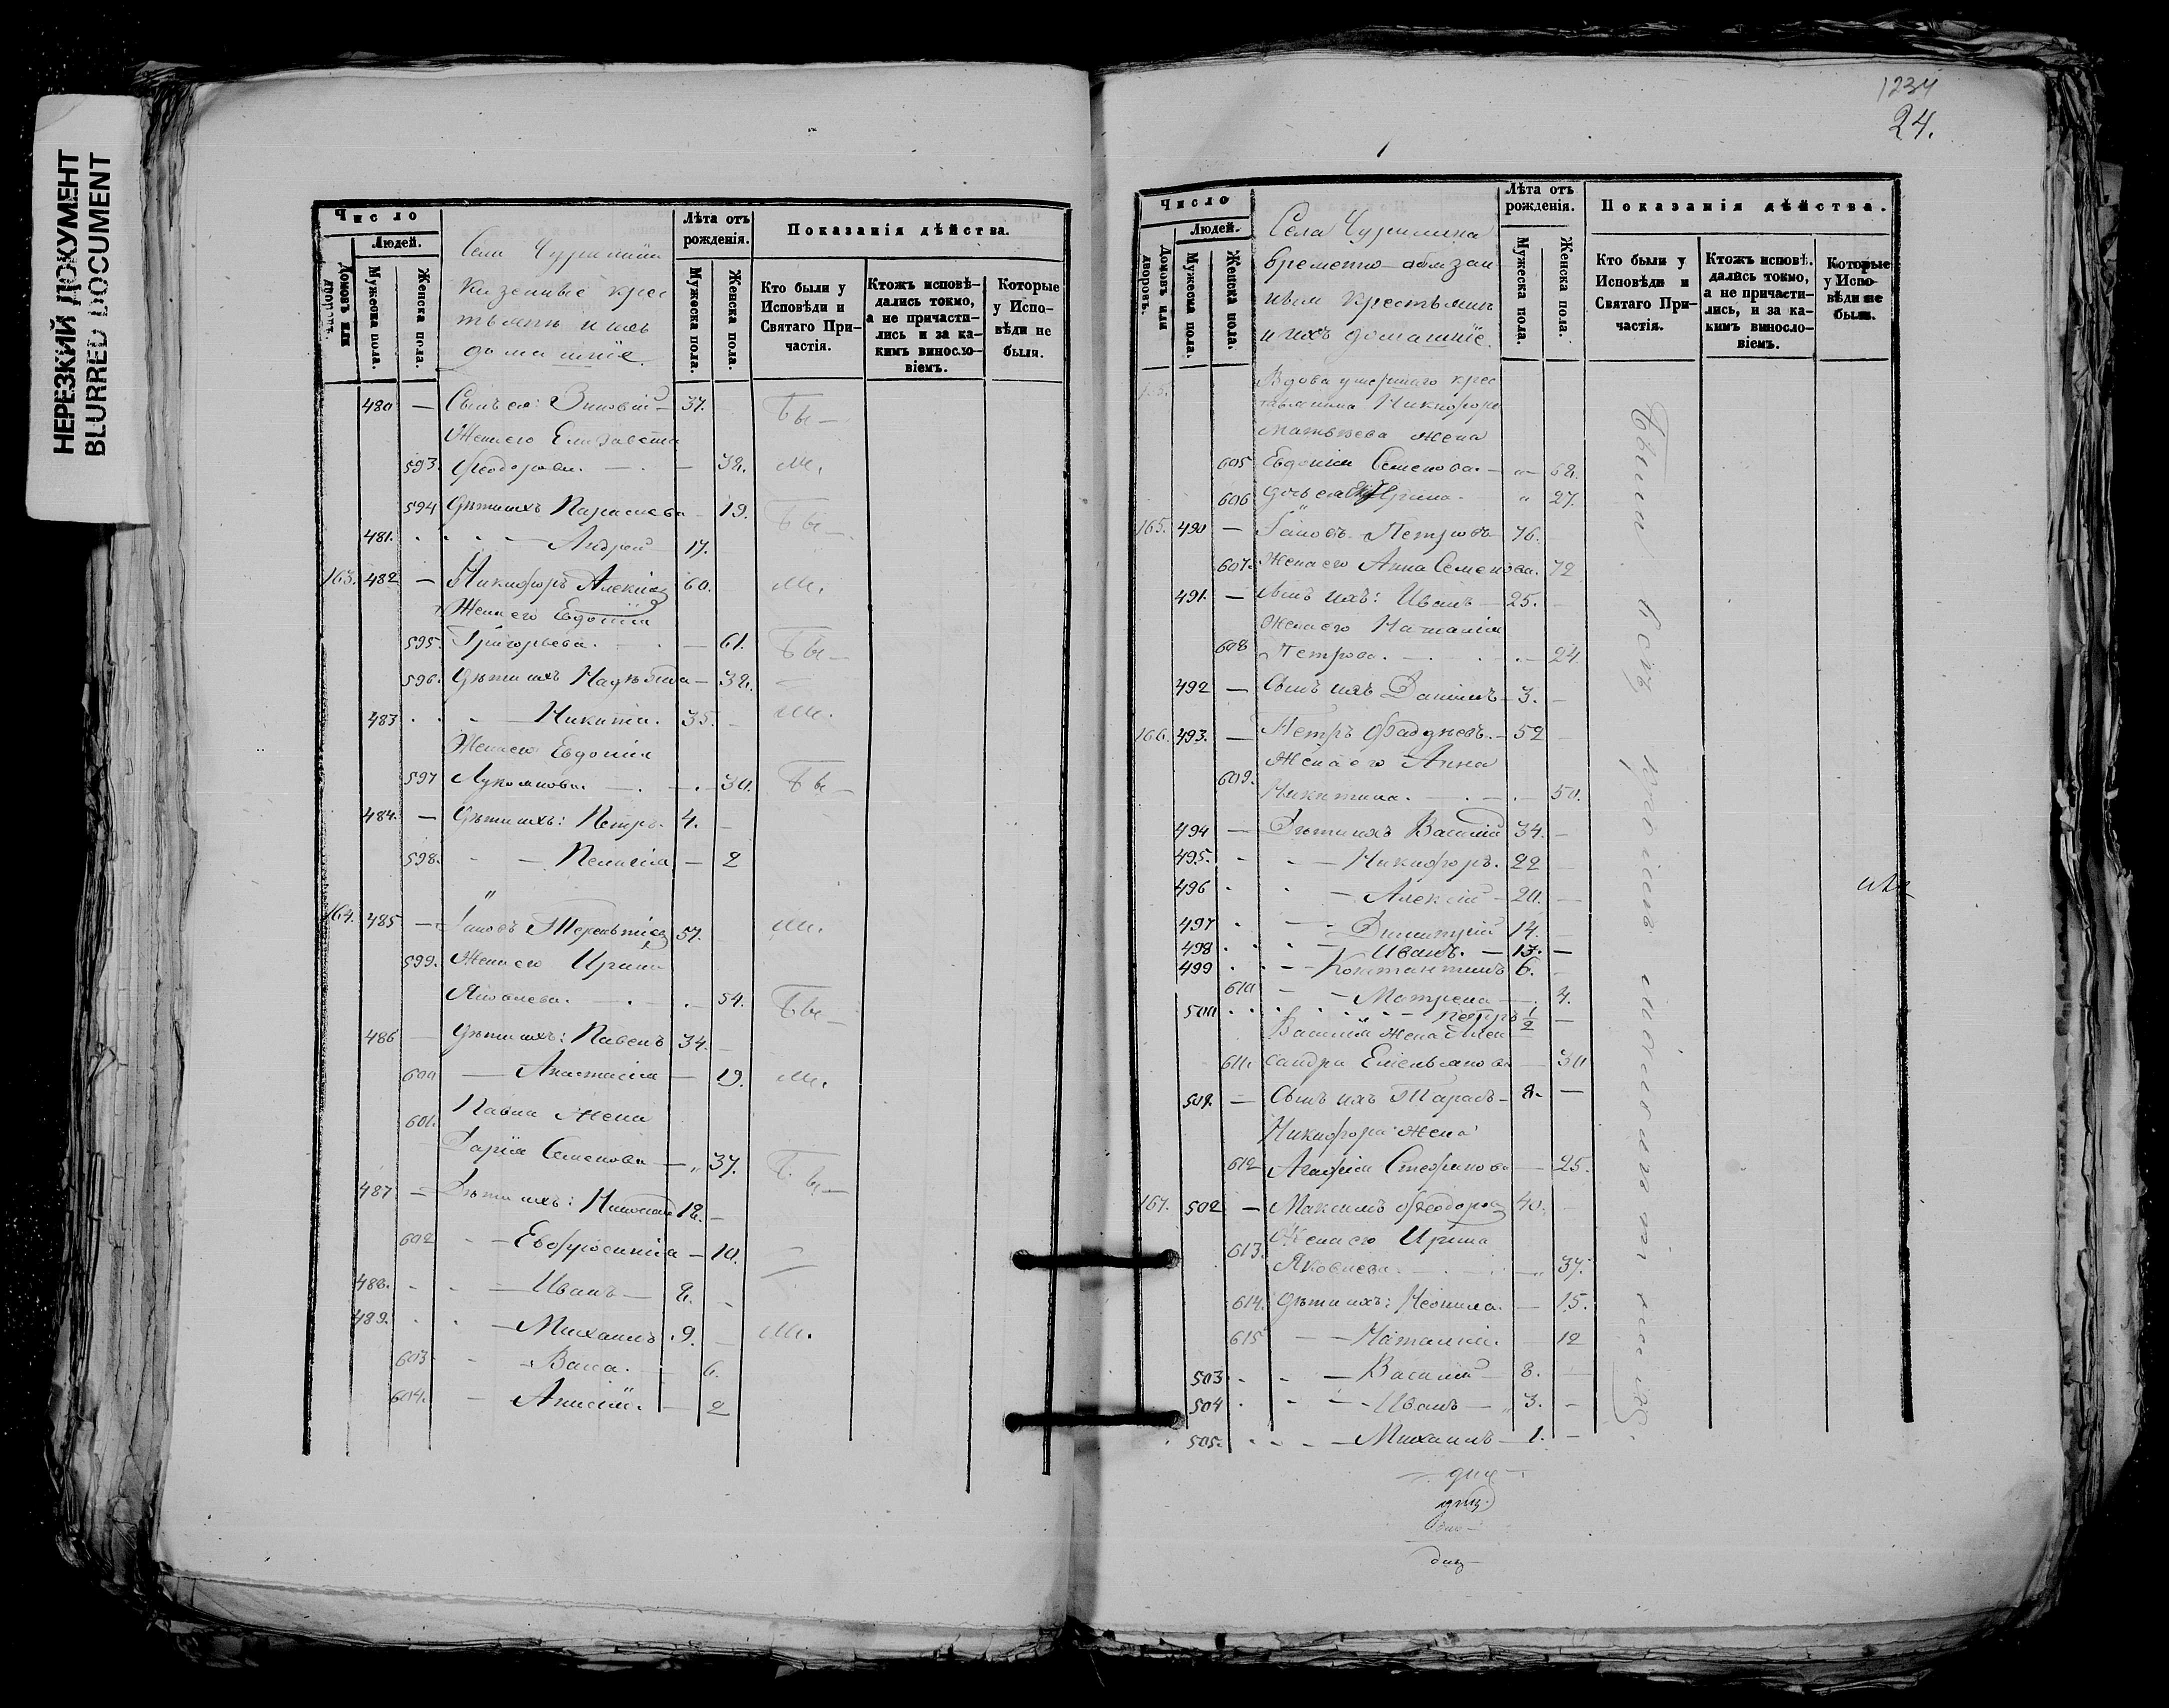 НЕРЕЗКИЙ ДОКУМЕНТ
BLURRED DOCUMENT
Число
Людей.
Домовъ или дворовъ.
Мужеска пола.
Женска пола.
Лѣта отъ рожденія.
Мужеска пола.
Женска пола.
Показанія дѣйства.
Кто были у Исповѣди и Святаго Причастія.
Ктожъ исповѣдались токмо, а не причастились и за какимъ винословіемъ.
Которые у Исповѣди не были.
домашніе
480 — Сынъ ея: Зиновій — 37.
Жена его Елизавета
593. Феодорова. — 38.
594 Дѣти ихъ Параскева 19.
481. Андрей 17.
163. 482 — Никифоръ Алексѣев 60.
Жена его Евдокія
595. Григорьева. — 61.
596. Дѣти ихъ — 38.
483 Никита. 35.
Жена его Евдокія
597 — 30.
484. — Дѣти ихъ: Петръ. 4.
598. — Пелагія — 2
164. 485 — Іаковъ Терентіев 57.
599. Жена его Ирина
Яковлева. — 54.
486 — Дѣти ихъ: Павелъ 34.
600 — Анастасія — 19.
601. Павла жена
Дарія Семенова — 37.
487 — Дѣти ихъ: Николай 12.
602 — Евфросинія — 10.
488. — Иванъ — 8.
489. — Михаилъ 9.
603 6.
604. 2
1234
24.
Число
Людей.
Домовъ или дворовъ.
Мужеска пола.
Женска пола.
Лѣта отъ рожденія.
Мужеска пола.
Женска пола.
Показанія дѣйства.
Кто были у Исповѣди и Святаго Причастія.
Ктожъ исповѣдались токмо, а не причастились, и за какимъ винословіемъ.
Которые у Исповѣди не были.
Села Чурилина
временно-обязан
ные крестьяне
и ихъ домашніе.
Вдова умершаго крес
тьянина Никифора
Матвѣева жена
605 Евдокія Семенова — 68.
606 дочь ея Ирина 27.
165. 490 — Іаковъ Петровъ 76.
607. Жена его Анна Семенова. 72
491. — Сынъ ихъ: Иванъ — 25.
Жена его Наталія
608 Петрова. — 24
492 — Сынъ ихъ Даніилъ — 3.
166. 493. — Петръ Фаддѣевъ. — 52
Жена его Анна
609. Никитина. — 50.
494 — Дѣти ихъ Василій 34.
495. — Никифоръ. 22
496 — Алексій — 20.
497 — Димитрій 14.
498 — Иванъ. — 13.
499 — Константинъ 6.
610 — Матрена — 4.
500 — Петръ 1/2
Василія жена Алек
611. сандра Емельянова — 30
501. — Сынъ ихъ Тарасъ — 8.
Никифора жена
612 Агафія Стефанова — 25.
167. 502 — Максимъ Феодоров 40.
613. Жена его Ирина
Яковлева. — 37.
614. Дѣти ихъ: Неонила. — 15.
615 — Наталія. 12
503 — Василій — 8.
504 — Иванъ — 3.
505. — Михаилъ — 1.